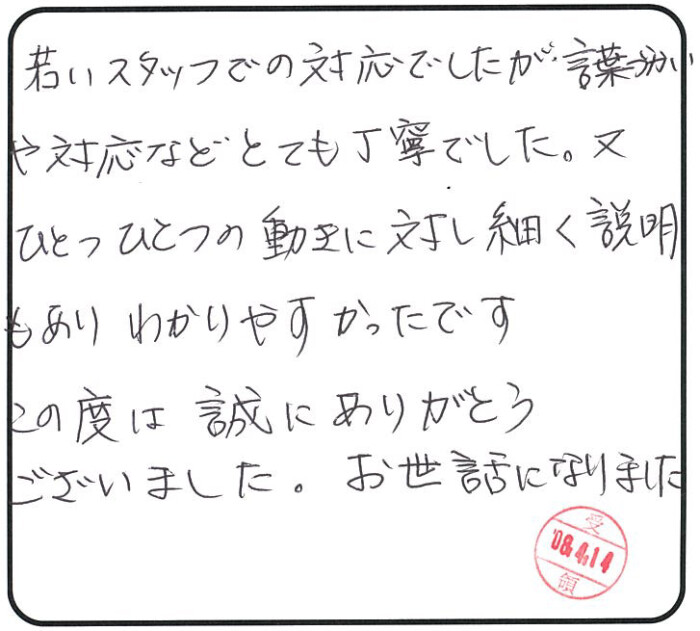 若いスタッフでの対応でしたが言葉づかい
や対応などとても丁寧でした。又
ひとつひとつの動きに対し細く説明
もあり わかりやすかったです
この度は 誠にありがとう
ございました。お世話になりました
受
'08.4.14
領